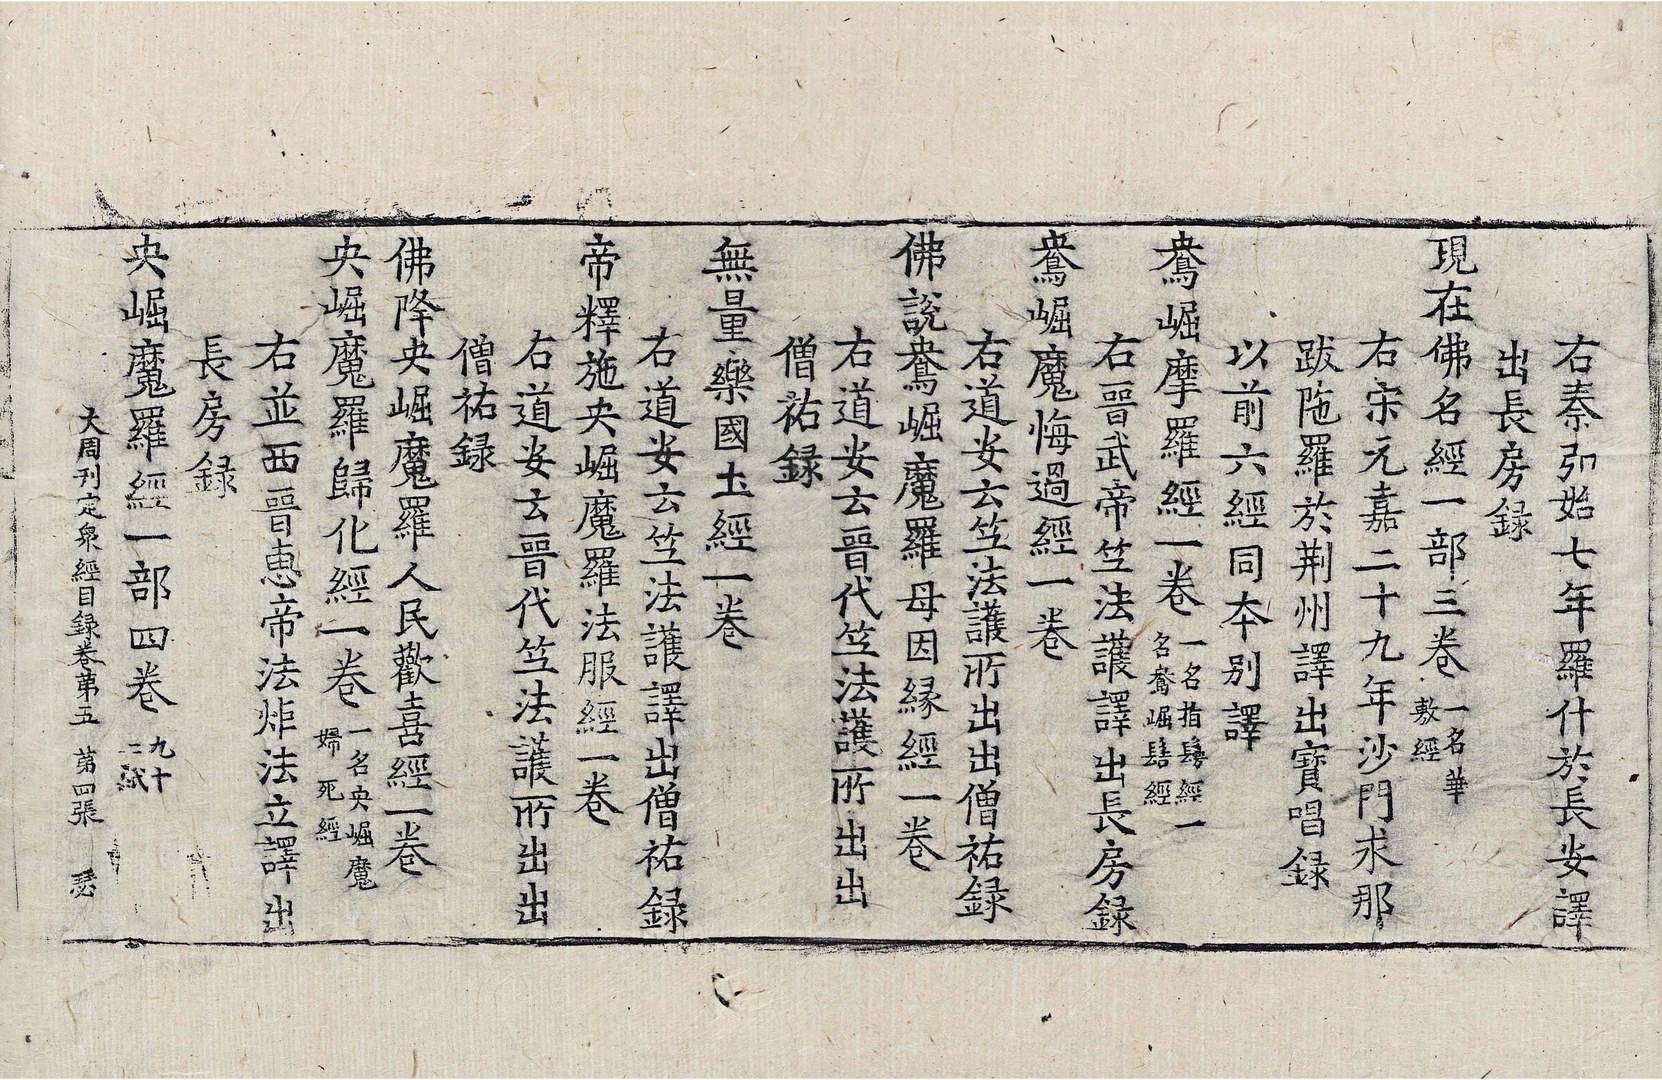 右秦弘始七年羅什於長安譯
出長房録
現在佛名經一部三卷一名華敷經
右宋元嘉二十九年沙門求那
跋陁羅於荆州譯出寳唱録
以前六經同本别譯
鴦崛摩羅經一卷一名指鬘經一名鴦崛髻經
右晋武帝竺法護譯出長房録
鴦崛魔悔過經一卷
右道安云竺法護所出出僧祐録
佛説鴦崛魔羅母因緣經一卷
右道安云晋代竺法護所出出
僧祐録
無量樂國土經一卷
右道安云竺法護譯出僧祐録
帝釋施央崛魔羅法服經一卷
右道安云晋代竺法護所出出
僧祐録
佛降央崛魔羅人民歡喜經一卷
央崛魔羅歸化經一卷一名央崛魔婦死經
右並西晋惠帝法炬法立譯出
長房録
央崛魔羅經一部四卷九十二紙
大周刊定衆經目録卷第五 第四張 瑟